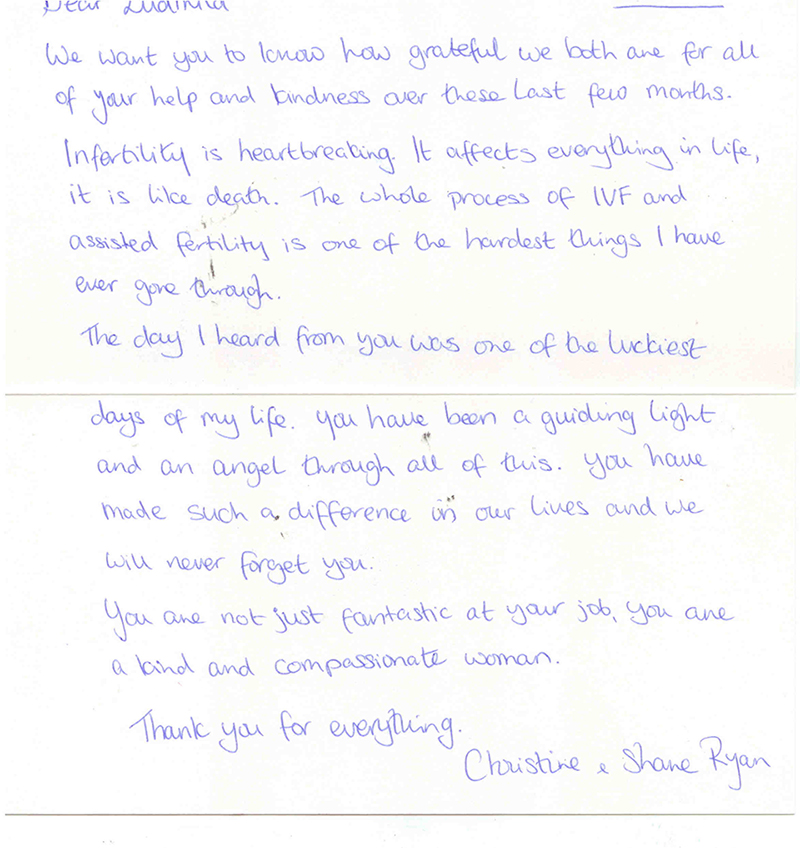 Dear
We want you to know how grateful we both are for all
of your help and kindness over these last few months.
Infertility is heartbreaking. It affects everything in life,
it is like death. The whole process of IVF and
assisted fertility is one of the hardest things I have
ever gone through.
The day I heard from you was one of the luckiest
days of my life. You have been a guiding light
and an angel through all of this. You have
made such a difference in our lives and we
will never forget you.
You are not just fantastic at your job, you are
a kind and compassionate woman.
Thank you for everything.
Christine & Shane Ryan